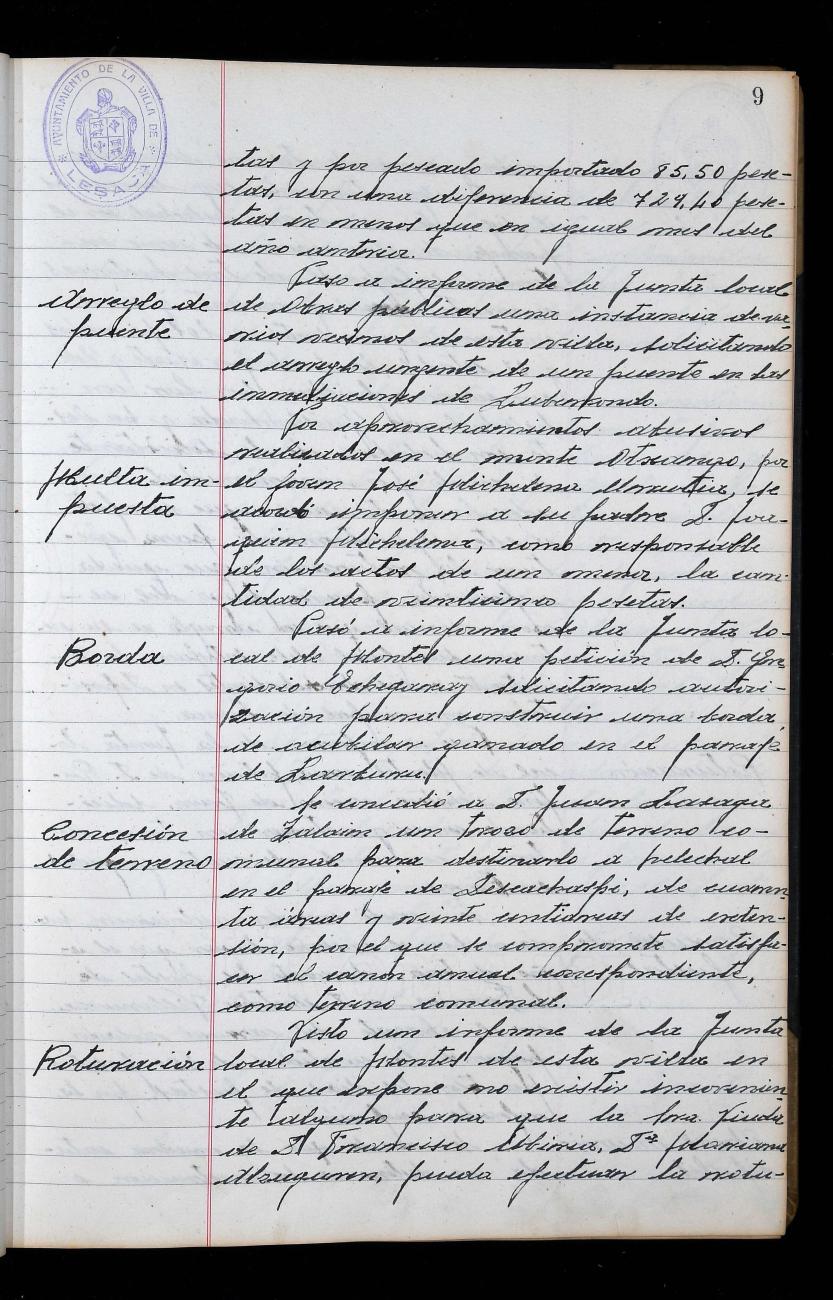 9
AYUNTAMIENTO DE LA VILLA DE
LESACA
tas y por pescado importado 85,50 pese-
tas, con una diferencia de 729,40 pese-
tas en menos que en igual mes del
año anterior.
Arreglo de
puente
Paso a informe de la Junta local
de Obras públicas una instancia de va-
rios vecinos de esta villa, solicitando
el arreglo urgente de un puente en las
inmediaciones de
Multa im-
puesta
Por aprovechamientos abusivos
realizados en el monte Otsango, por
el joven José Michelena, se
acordó imponer a su padre D. Joa-
quin Michelena, como responsable
de los actos de un menor, la can-
tidad de veinticinco pesetas.
Borda
Pasó a informe de la Junta lo-
cal de Montes una petición de D. Gre
gorio Echegaray solicitando autori-
zación para construir una borda
de acubilar ganado en el paraje
de
Concesión
de terreno
Se concedió a D. Juan Lasaga
de Zalain un trozo de terreno co-
munal para destinarlo a helechal
en el paraje de, de cuaren-
ta áreas y veinte centiáreas de exten-
sión, por el que se compromete satisfa-
cer el canon anual correspondiente,
como terreno comunal.
Roturación
Visto un informe de la Junta
local de Montes de esta villa en
el que expone no existir inconvenien
te alguno para que la Sra. Viuda
de D. Francisco, Dª Mariana
, pueda efectuar la rotu-